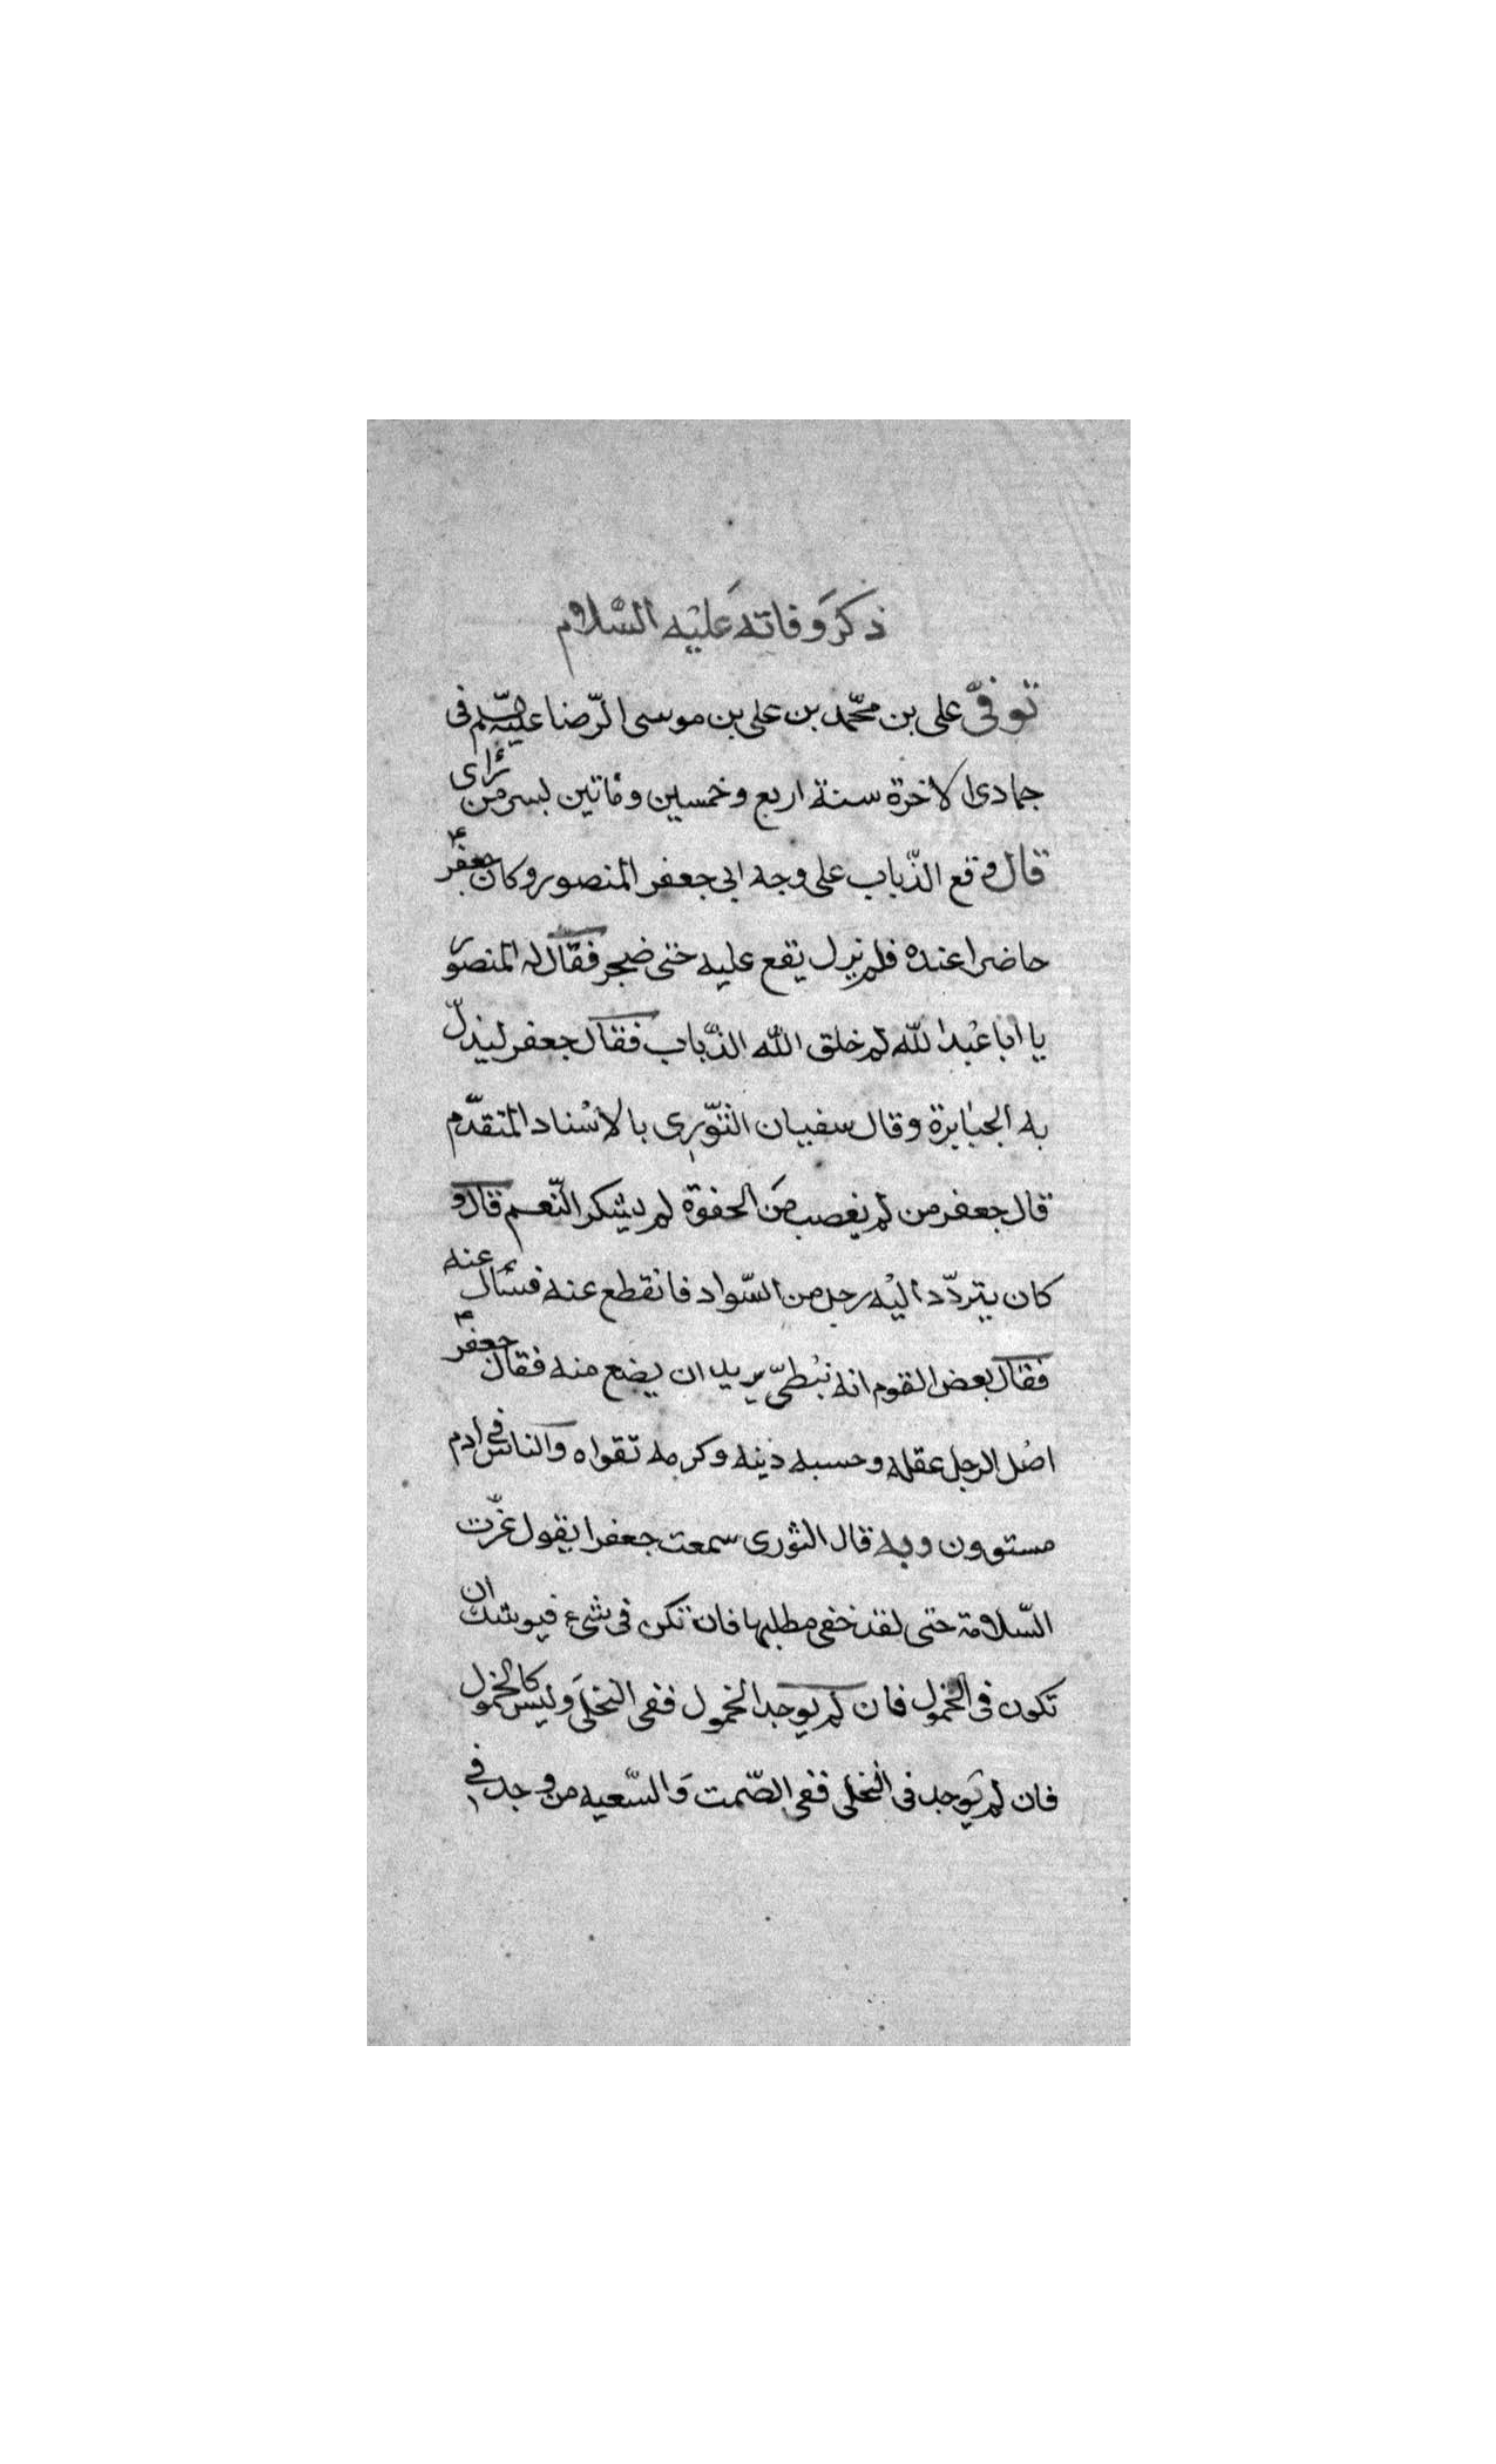 ذكر وفاته عليه السلام
توفّى على بن محمّد بن على بن موسى الرّضا عليه السّلم فى
جمادى الاخرة سنة اربع وخمسين ومأتين بسرمن رأى
قال وقع الذّباب على وجه ابى جعفر المنصور وكان جعفر ع
حاضرا عنده فلم يزل يقع عليه حتى ضجر فقال له المنصور
يا ابا عبد الله لم خلق الله الذّباب فقال جعفر ليذلّ
به الجبابرة وقال سفيان الثّورى بالاسناد المتقدّم
قال جعفر من لم يغصب من الجفوة لم يشكر النّعم قال و
كان يتردّد اليه رجل من السّواد فانقطع عنه فسأل عنه
فقال بعض القوم انه نبطىّ يريد ان يضع منه فقال جعفر ع
اصل الرجل عقله وحسبه دينه وكرمه تقواه والناس فى ادم
مستوون وبه قال الثورى سمعت جعفرا يقول عزّت
السّلامة حتى لقد خفى مطلبها فان تكن فى شىء فيوشك ان
تكون فى الخمول فان لم يوجد الخمول ففى التخلى وليس كالخمول
فان لم توجد فى التخلى ففى الصّمت والسّعيد من وجد فى